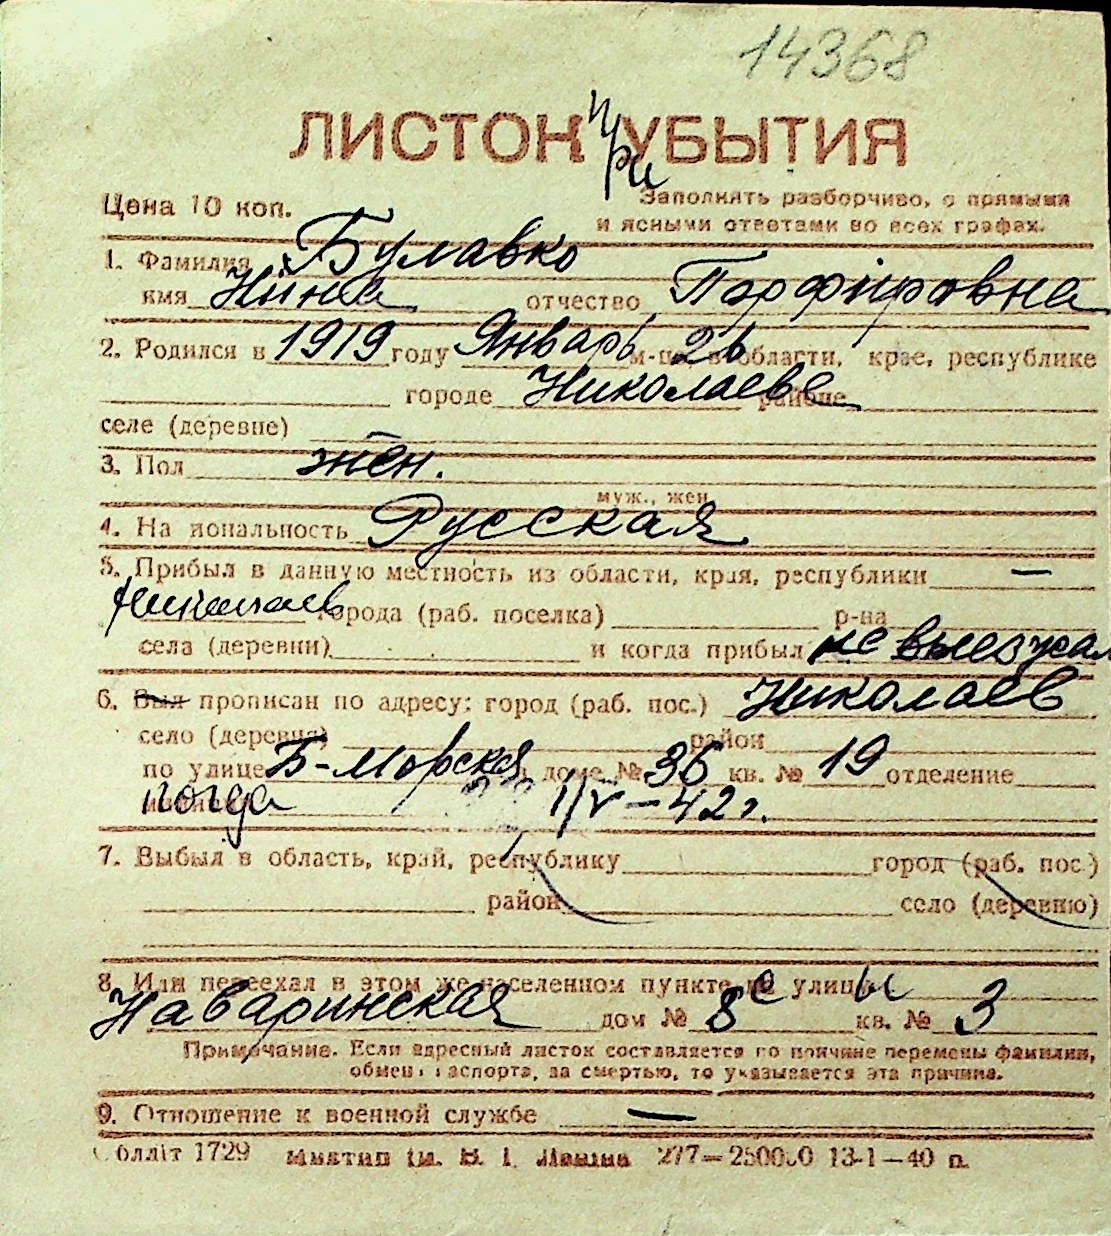 14368
ЛИСТОК при УБЫТИЯ
Цена 10 коп.
Заполнять разборчиво, с прямыми
и ясными ответами во всех графах.
1. Фамилия Булавко
имя Нина отчество Порфировна
2. Родился в 1919 году Январь м-ца 26 в области, крае, республике
городе Николаеве районе
селе (деревне) —
3. Пол жен.
муж., жен.
4. Национальность Русская
5. Прибыл в данную местность из области, края, республики —
Николаев города (раб. поселка) р-на
села (деревни) и когда прибыл не выезжал
6. Был прописан по адресу: город (раб. пос.) Николаев
село (деревня) район
по улице Б-Морская доме № 36 кв. № 19 отделение
когда 1/V-42 г.
7. Выбыл в область, край, республику город (раб. пос.)
район село (деревню)
8. Или переехал в этом же населенном пункте на улицу с ы
Наваринская дом № 8 кв. № 3
Примечание. Если адресный листок составляется по причине перемены фамилии,
обмена паспорта, за смертью, то указывается эта причина.
9. Отношение к военной службе —
Облліт 1729 Миктип ім. В. І. Леніна 277—250000 13-1—40 п.